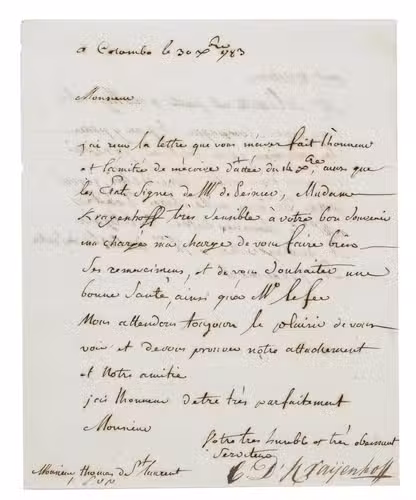 a Colombo le 30 xbre 1783
Monsieur
jai recu la lettre que vous m'avez fait l'honneur
et lamitié de mecrire datée du 14 xbre, ainsi que
les Etat Signés de Mr de Bernier, Madame
Krayenhoff très Sensible à votre bon Souvenir
ma chargé ma chargé de vous faire bien
Ses remercimens, et de vous Souhaiter une
bonne Santé, ainsi qu'a Mr
Nous attendons toujour le plaisir de vous
voir et de vous prouver nôtre attachement
et Notre amitie
jai lhonneur detre très parfaitement
Monsieur
Votre tres humble et très obeissant
Serviteur
C: D: Krayenhoff
Monsieur thomas de St laurent